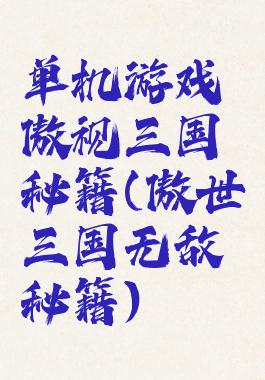 单机游戏
傲视三国
秘籍(傲世
三国无敌
秘籍)